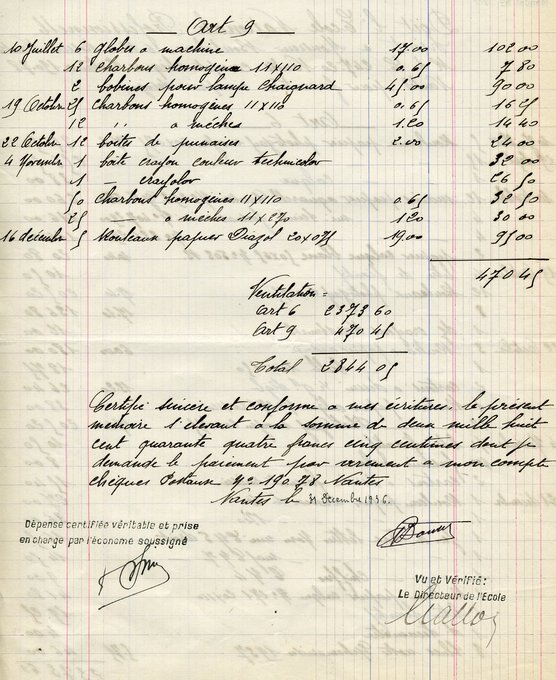 Art 9
10 Juillet 6 globes a machine 17.00 102 00
12 charbons homogène 11 x 110 0.65 7 80
2 bobines pour lampe Chaignard 45.00 90 00
19 Octobre 25 charbons homogenes 11 x 110 0.65 16 25
12 " a mêches 1.20 14 40
22 Octobre 12 boites de punaises 2.00 24 00
4 Novembre 1 boite crayon couleur technicolor 32 00
1 — crayolor 26 50
50 charbons homogines 11 x 110 0.65 32 50
25 — a mêches 11 x 270 1.20 30 00
16 décembre 5 Rouleaux papier Diazol 20 x 075 19.00 95 00
470 45
Ventilation =
art 6 2373 60
art 9 470 45
Total 2844 05
Certifié sincère et conforme a mes écritures, le présent
memoire s'élevant à la somme de deux mille huit
cent quarante quatre francs cinq centimes dont je
demande le paiement par virement a mon compte
chèques Postaux N° 190.78 Nantes
Nantes le 31 Decembre 1936.
Dépense certifiée véritable et prise
en charge par l'économe soussigné
Vu et Vérifié:
Le Directeur de l'Ecole